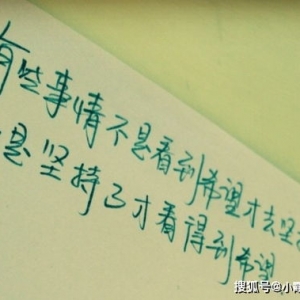 有些事情不是看到希望才去坚
是坚持了才看得到希望
搜狐号@小